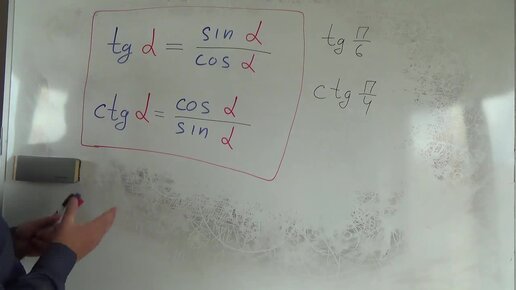 tg α = sin α / cos α
ctg α = cos α / sin α
tg π/6
ctg π/4